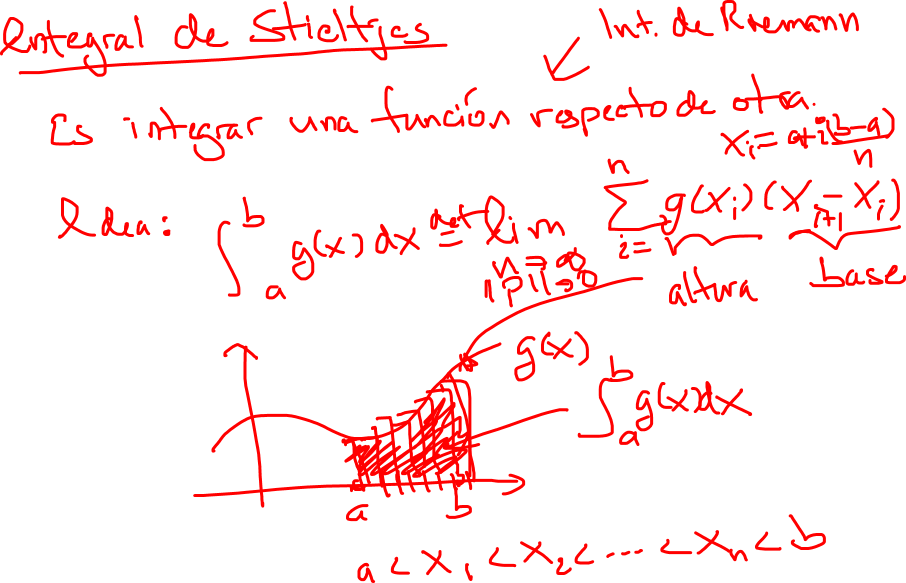 Integral de Stieltjes
Int. de Riemann
Es integrar una función respecto de otra.
x_i = a+i(b-a)/n
Idea: ∫_a^b g(x)dx =^{def} lim_{n→∞, ||P||→0} ∑_{i=}^n g(x_i)(x_{i+1} - x_i)
altura base
g(x)
∫_a^b g(x)dx
a b
a < x_1 < x_2 < ... < x_n < b